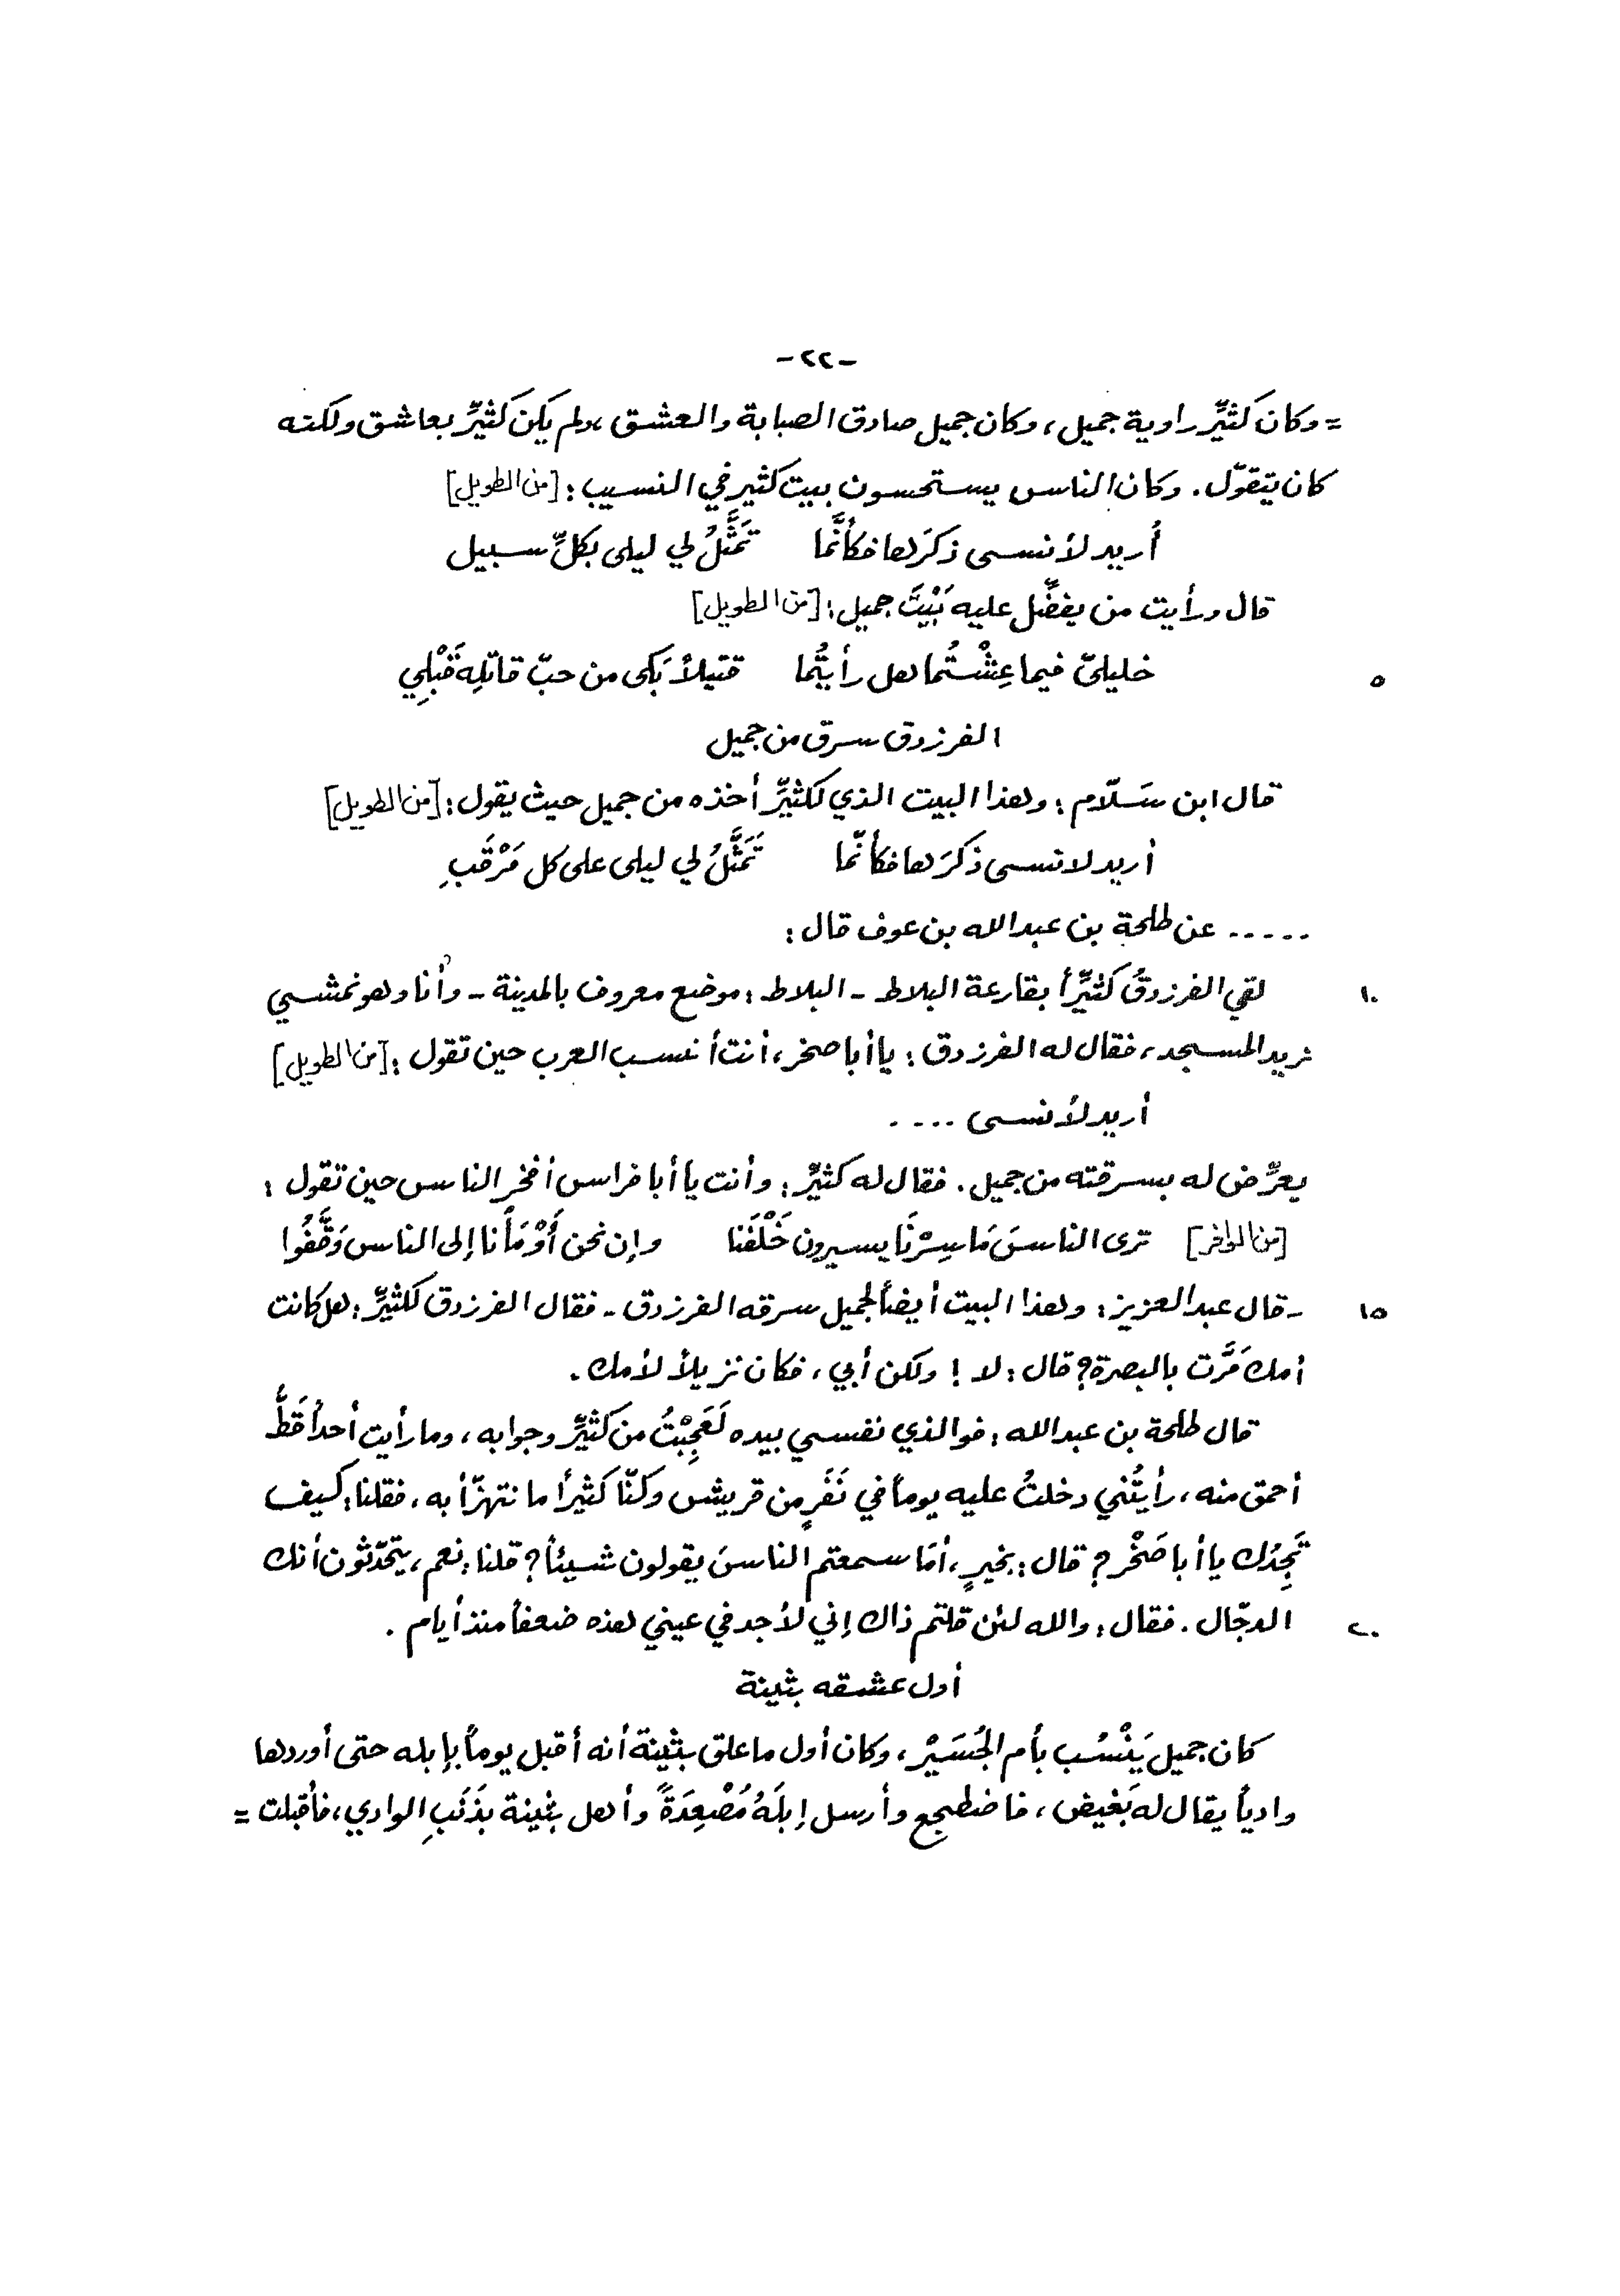 -٢٢-
= وكان كثيِّر راوية جميل، وكان جميل صادق الصبابة والعشق، ولم يكن كثيِّر بعاشق ولكنه
كان يتقوّل. وكان الناس يستحسنون بيت كثير في النسيب: [من الطويل]
أُريد لأنسى ذكرَها فكأنَّما تَمَثَّلُ لي ليلى بكلِّ سبيل
قال ورأيت من يفضّل عليه بَيْتَ جميل: [من الطويل]
٥ خليليّ فيما عِشْتُما هل رأيتُما قتيلاً بَكى من حبّ قاتلِه قَبْلِي
الفرزدق سرق من جميل
قال ابن سَلّام: وهذا البيت الذي لكثيِّر أخذه من جميل حيث يقول: [من الطويل]
أريد لانسى ذكرَها فكأنّما تَمَثَّلُ لي ليلى على كل مَرْقَبِ
..... عن طلحة بن عبدالله بن عوف قال:
١٠ لقي الفرزدقُ كثيِّراً بقارعة البلاط - البلاط: موضع معروف بالمدينة - وأنا وهو نمشي
نريد المسجد، فقال له الفرزدق: يا أبا صخر، أنت أنسب العرب حين تقول: [من الطويل]
أريد لأنسى ....
يعرِّض له بسرقته من جميل. فقال له كثيِّر: وأنت يا أبا فراس أفخر الناس حين تقول:
[من الوافر] ترى الناسَ مَا سِرْنَا يسيرون خَلْفَنا وإن نحن أَوْمَأْنا إلى الناس وَقَّفُوا
١٥ - قال عبدالعزيز: وهذا البيت أيضاً لجميل سرقه الفرزدق - فقال الفرزدق لكثيِّر: هل كانت
أمك مَرَّت بالبصرة؟ قال: لا! ولكن أبي، فكان نزيلاً لأمك.
قال طلحة بن عبدالله: فوالذي نفسي بيده لَعَجِبْتُ من كثيِّر وجوابه، وما رأيت أحداً قَطُّ
أحمق منه، رأيتُني دخلتُ عليه يوماً في نَفَرٍ من قريش وكنّا كثيراً ما نتهزّأ به، فقلنا: كيف
تَجِدُك يا أبا صَخْر؟ قال: بخيرٍ، أمَا سمعتم الناسَ يقولون شيئاً؟ قلنا: نعم، يتحدّثون أنك
٢٠ الدجّال. فقال: والله لئن قلتم ذاك إني لأجد في عيني هذه ضعفاً منذ أيام.
أول عشقه بثينة
كان جميل يَنْسُب بأم الجُسَيْر، وكان أول ما علق بثينة أنه أقبل يوماً بإبله حتى أوردها
وادياً يقال له بَغيض، فاضطجع وأرسل إبلَهُ مُصْعِدَةً وأهل بثينة بذَنَبِ الوادي، فأقبلت =